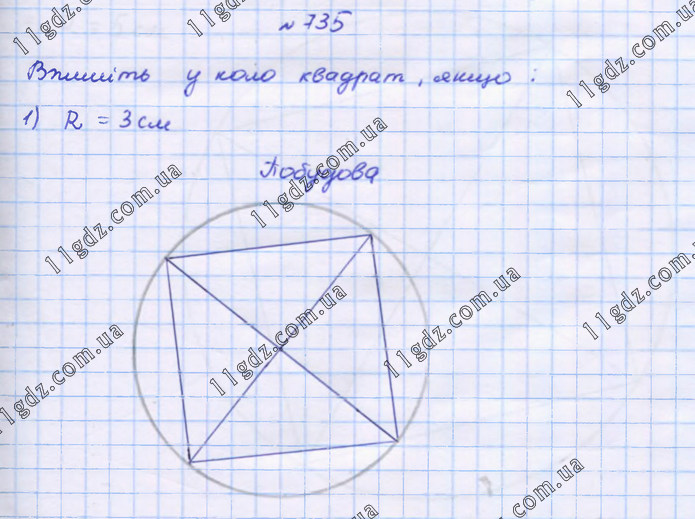 № 735
Впишіть у коло квадрат, якщо:
1) R = 3 см
Побудова
11gdz.com.ua
11gdz.com.ua
11gdz.com.ua
11gdz.com.ua
11gdz.com.ua
11gdz.com.ua
11gdz.com.ua
11gdz.com.ua
11gdz.com.ua
11gdz.com.ua
11gdz.com.ua